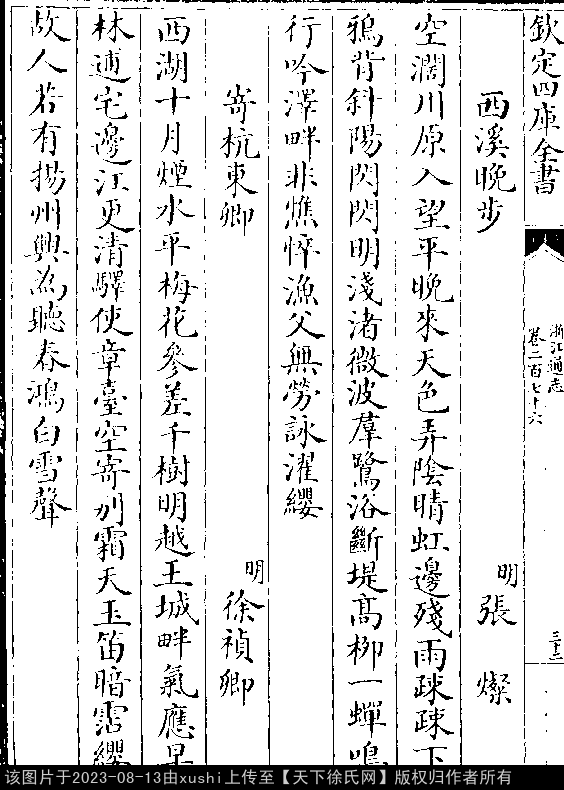 欽定四庫全書
浙江通志
卷二百七十六
三十二
西溪晚步
明張燦
空濶川原入望平晚來天色弄陰晴虹邊殘雨踈踈下
鴉背斜陽閃閃明淺渚微波羣鷺浴斷堤髙栁一蟬鳴
行吟澤畔非憔悴漁父無勞詠濯纓
寄杭東卿
明徐禎卿
西湖十月煙水平梅花參差千樹明越王城畔氣應早
林逋宅邊江更清驛使章臺空寄別霜天玉笛暗霑纓
故人若有揚州興為聽春鴻白雪聲
该图片于2023-08-13由xushi上传至【天下徐氏网】版权归作者所有